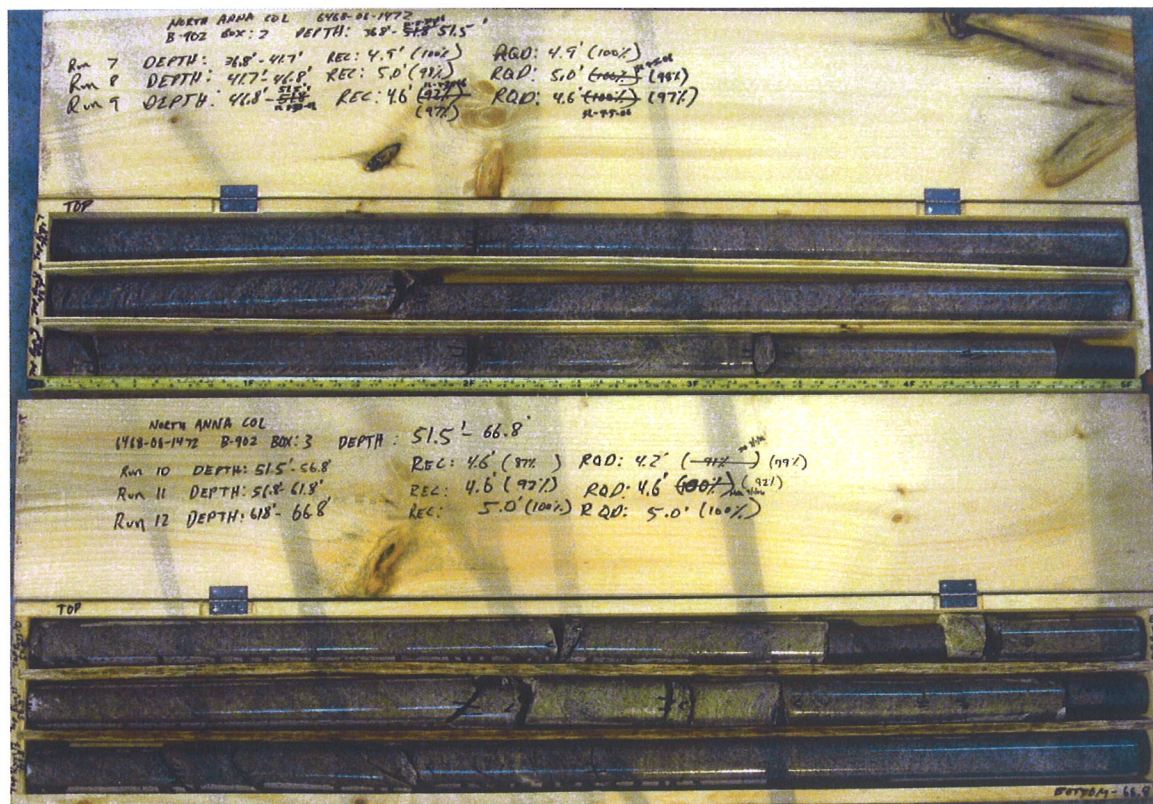 NORTH ANNA COL 6468-06-1472
B-902 BOX: 2 DEPTH: 36.8'- 51.8' 51.5'
Run 7 DEPTH: 36.8'- 41.7' REC: 4.9' (100%) RQD: 4.9' (100%)
Run 8 DEPTH: 41.7'- 46.8' REC: 5.0' (98%) RQD: 5.0' (100%) (98%)
Run 9 DEPTH: 46.8'- 51.8' 51.5' REC: 4.6' (92%) RQD: 4.6' (100%) (97%)
(97%)
TOP
1F 2F 3F 4F 5F
NORTH ANNA COL
6468-06-1472 B-902 BOX: 3 DEPTH: 51.5'- 66.8'
Run 10 DEPTH: 51.5'- 56.8' REC: 4.6' (87%) RQD: 4.2' (91%) (79%)
Run 11 DEPTH: 56.8'- 61.8' REC: 4.6' (92%) RQD: 4.6' (100%) (92%)
Run 12 DEPTH: 61.8'- 66.8' REC: 5.0' (100%) RQD: 5.0' (100%)
TOP
BOTTOM - 66.8